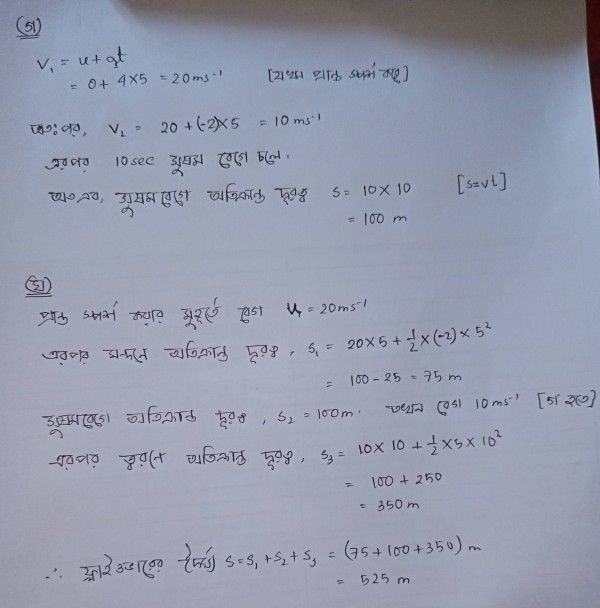 (গ)
V₁ = u + at
= 0 + 4×5 = 20 ms⁻¹ [যখন প্রান্ত স্পর্শ করে]
অতঃপর, V₂ = 20 + (-2)×5 = 10 ms⁻¹
এরপর 10 sec সুষম বেগে চলে।
অতএব, সুষমবেগে অতিক্রান্ত দূরত্ব S = 10 × 10 [s=vt]
= 100 m
(ঘ)
প্রান্ত স্পর্শ করার মুহূর্তে বেগ u = 20 ms⁻¹
এরপর মন্দনে অতিক্রান্ত দূরত্ব, S₁ = 20×5 + ½×(-2)×5²
= 100 - 25 = 75 m
সুষমবেগে অতিক্রান্ত দূরত্ব, S₂ = 100 m. তখন বেগ 10 ms⁻¹ [গ হতে]
এরপর ত্বরনে অতিক্রান্ত দূরত্ব, S₃ = 10×10 + ½×5×10²
= 100 + 250
= 350 m
∴ ফ্লাইওভারের দৈর্ঘ্য S = S₁ + S₂ + S₃ = (75 + 100 + 350) m
= 525 m